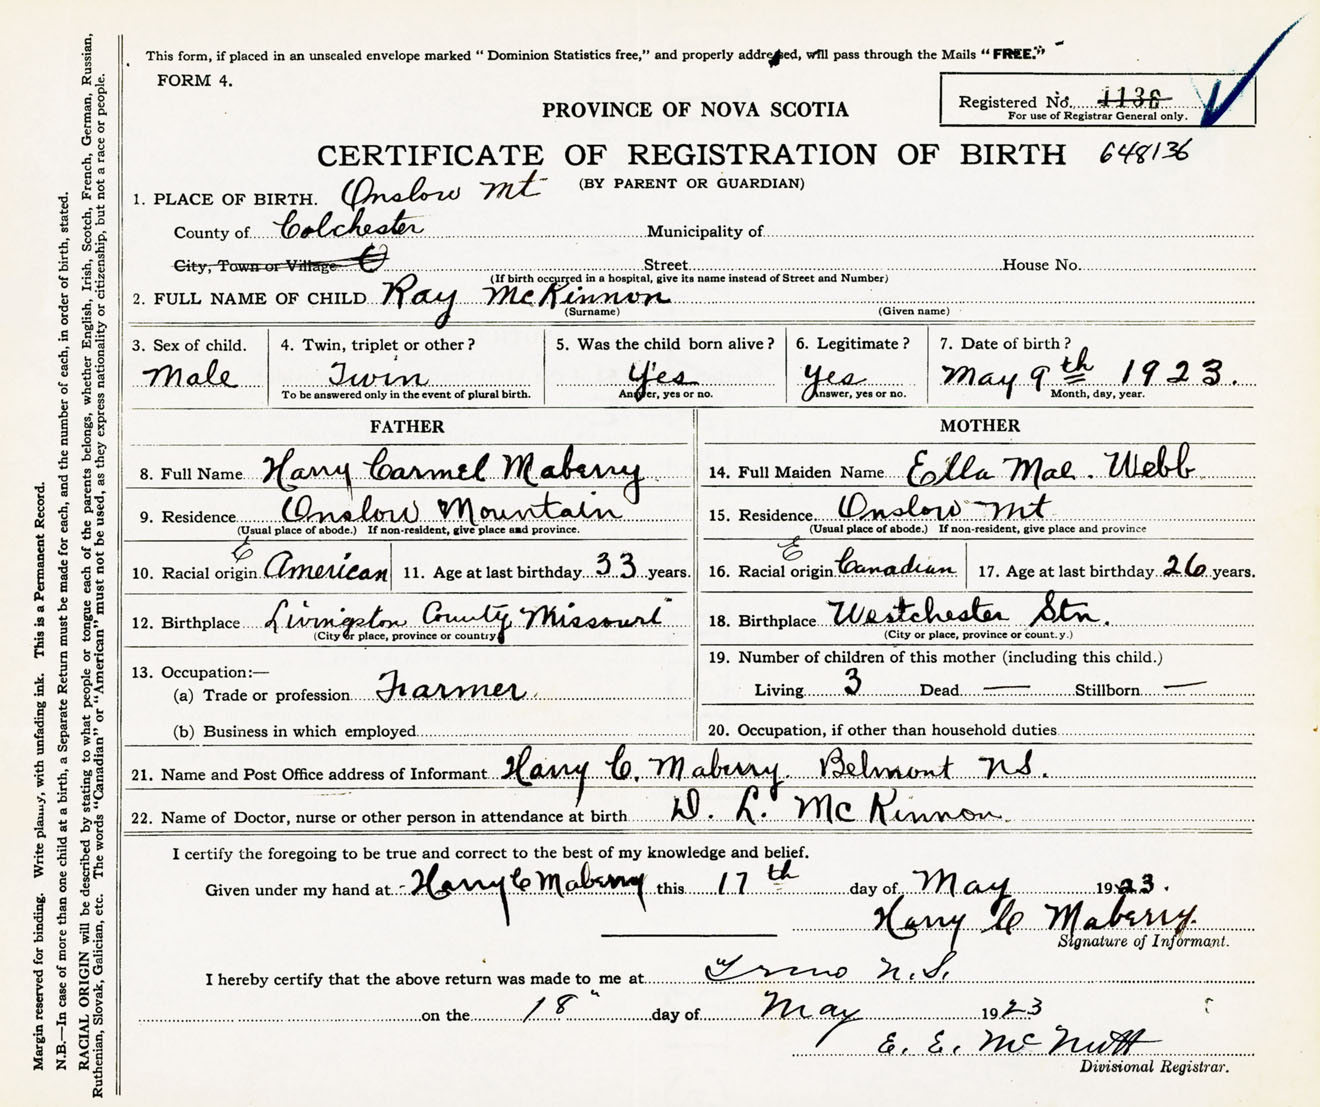 This form, if placed in an unsealed envelope marked "Dominion Statistics free," and properly addressed, will pass through the Mails "FREE."
FORM 4.
Registered No. 1136
For use of Registrar General only.
PROVINCE OF NOVA SCOTIA
CERTIFICATE OF REGISTRATION OF BIRTH 648136
(BY PARENT OR GUARDIAN)
1. PLACE OF BIRTH. Onslow Mt
County of Colchester Municipality of
City, Town or Village Street House No.
(If birth occurred in a hospital, give its name instead of Street and Number)
2. FULL NAME OF CHILD Ray McKinnon
(Surname) (Given name)
3. Sex of child. 4. Twin, triplet or other? 5. Was the child born alive? 6. Legitimate? 7. Date of birth?
Male Twin Yes Yes May 9th 1923.
To be answered only in the event of plural birth. Answer, yes or no. Answer, yes or no. Month, day, year.
FATHER MOTHER
8. Full Name Harry Carmel Maberry 14. Full Maiden Name Ella Mae. Webb
9. Residence Onslow Mountain 15. Residence Onslow Mt
(Usual place of abode.) If non-resident, give place and province. (Usual place of abode.) If non-resident, give place and province
E E
10. Racial origin American 11. Age at last birthday 33 years. 16. Racial origin Canadian 17. Age at last birthday 26 years.
12. Birthplace Livingston County Missouri 18. Birthplace Westchester Stn.
(City or place, province or country) (City or place, province or count.y.)
13. Occupation:— 19. Number of children of this mother (including this child.)
(a) Trade or profession Farmer. Living 3 Dead — Stillborn —
(b) Business in which employed 20. Occupation, if other than household duties
21. Name and Post Office address of Informant Harry C. Maberry. Belmont N.S.
22. Name of Doctor, nurse or other person in attendance at birth D. L. McKinnon.
I certify the foregoing to be true and correct to the best of my knowledge and belief.
Given under my hand at Harry C Maberry this 17th day of May 1923.
Harry C Maberry.
Signature of Informant.
I hereby certify that the above return was made to me at Truro N.S.
on the 18" day of May 1923
E. E. McNutt
Divisional Registrar.
Margin reserved for binding. Write plainly, with unfading ink. This is a Permanent Record.
N.B.—In case of more than one child at a birth, a Separate Return must be made for each, and the number of each, in order of birth, stated.
RACIAL ORIGIN will be described by stating to what people or tongue each of the parents belongs, whether English, Irish, Scotch, French, German, Russian,
Ruthenian, Slovak, Galician, etc. The words "Canadian" or "American" must not be used, as they express nationality or citizenship, but not a race or people.